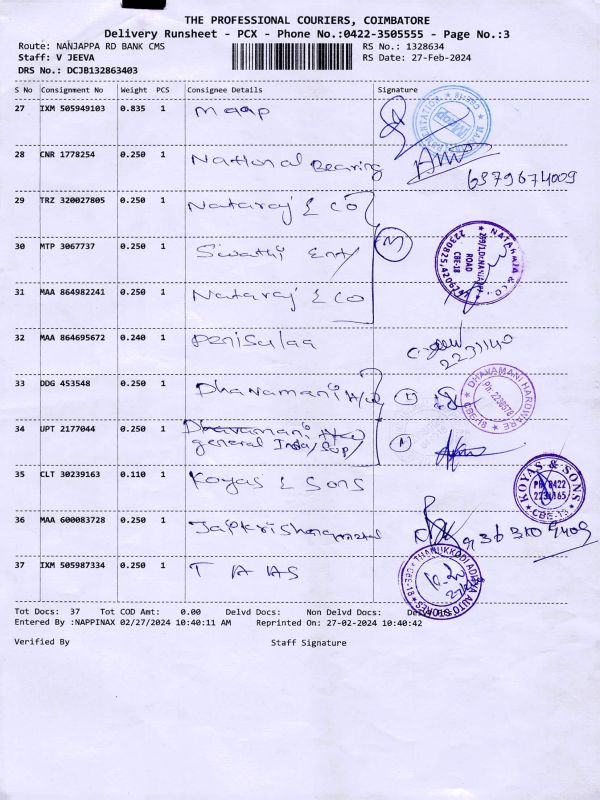 THE PROFESSIONAL COURIERS, COIMBATORE
Delivery Runsheet - PCX - Phone No.:0422-3505555 - Page No.:3
Route: NANJAPPA RD BANK CMS
RS No.: 1328634
Staff: V JEEVA
RS Date: 27-Feb-2024
DRS No.: DCJB132863403
S No Consignment No Weight PCS Consignee Details Signature
27 IXM 505949103 0.835 1 maap
28 CNR 1778254 0.250 1 National Bearing 6379674009
29 TRZ 320027805 0.250 1 Nataraj & CO
30 MTP 3067737 0.250 1 Swathi Enty
31 MAA 864982241 0.250 1 Nataraj & CO
NATARAJA & CO.
ROAD
CBE-18
32 MAA 864695672 0.240 1 Penisulaa 2231140
33 DDG 453548 0.250 1 Dhavamani H/w
DHAVAMANI HARDWARE
CBE-18
34 UPT 2177044 0.250 1 Dhavamani
general India/Sup/
35 CLT 30239163 0.110 1 Koyas & Sons
KOYAS & SONS
PH:0422
2231165
CBE-18
36 MAA 600083728 0.250 1
37 IXM 505987334 0.250 1 T A AS
THANUKKODI ADHYA AUTO STORES
CBE-18
Tot Docs: 37 Tot COD Amt: 0.00 Delvd Docs: Non Delvd Docs:
Entered By :NAPPINAX 02/27/2024 10:40:11 AM Reprinted On: 27-02-2024 10:40:42
Verified By Staff Signature